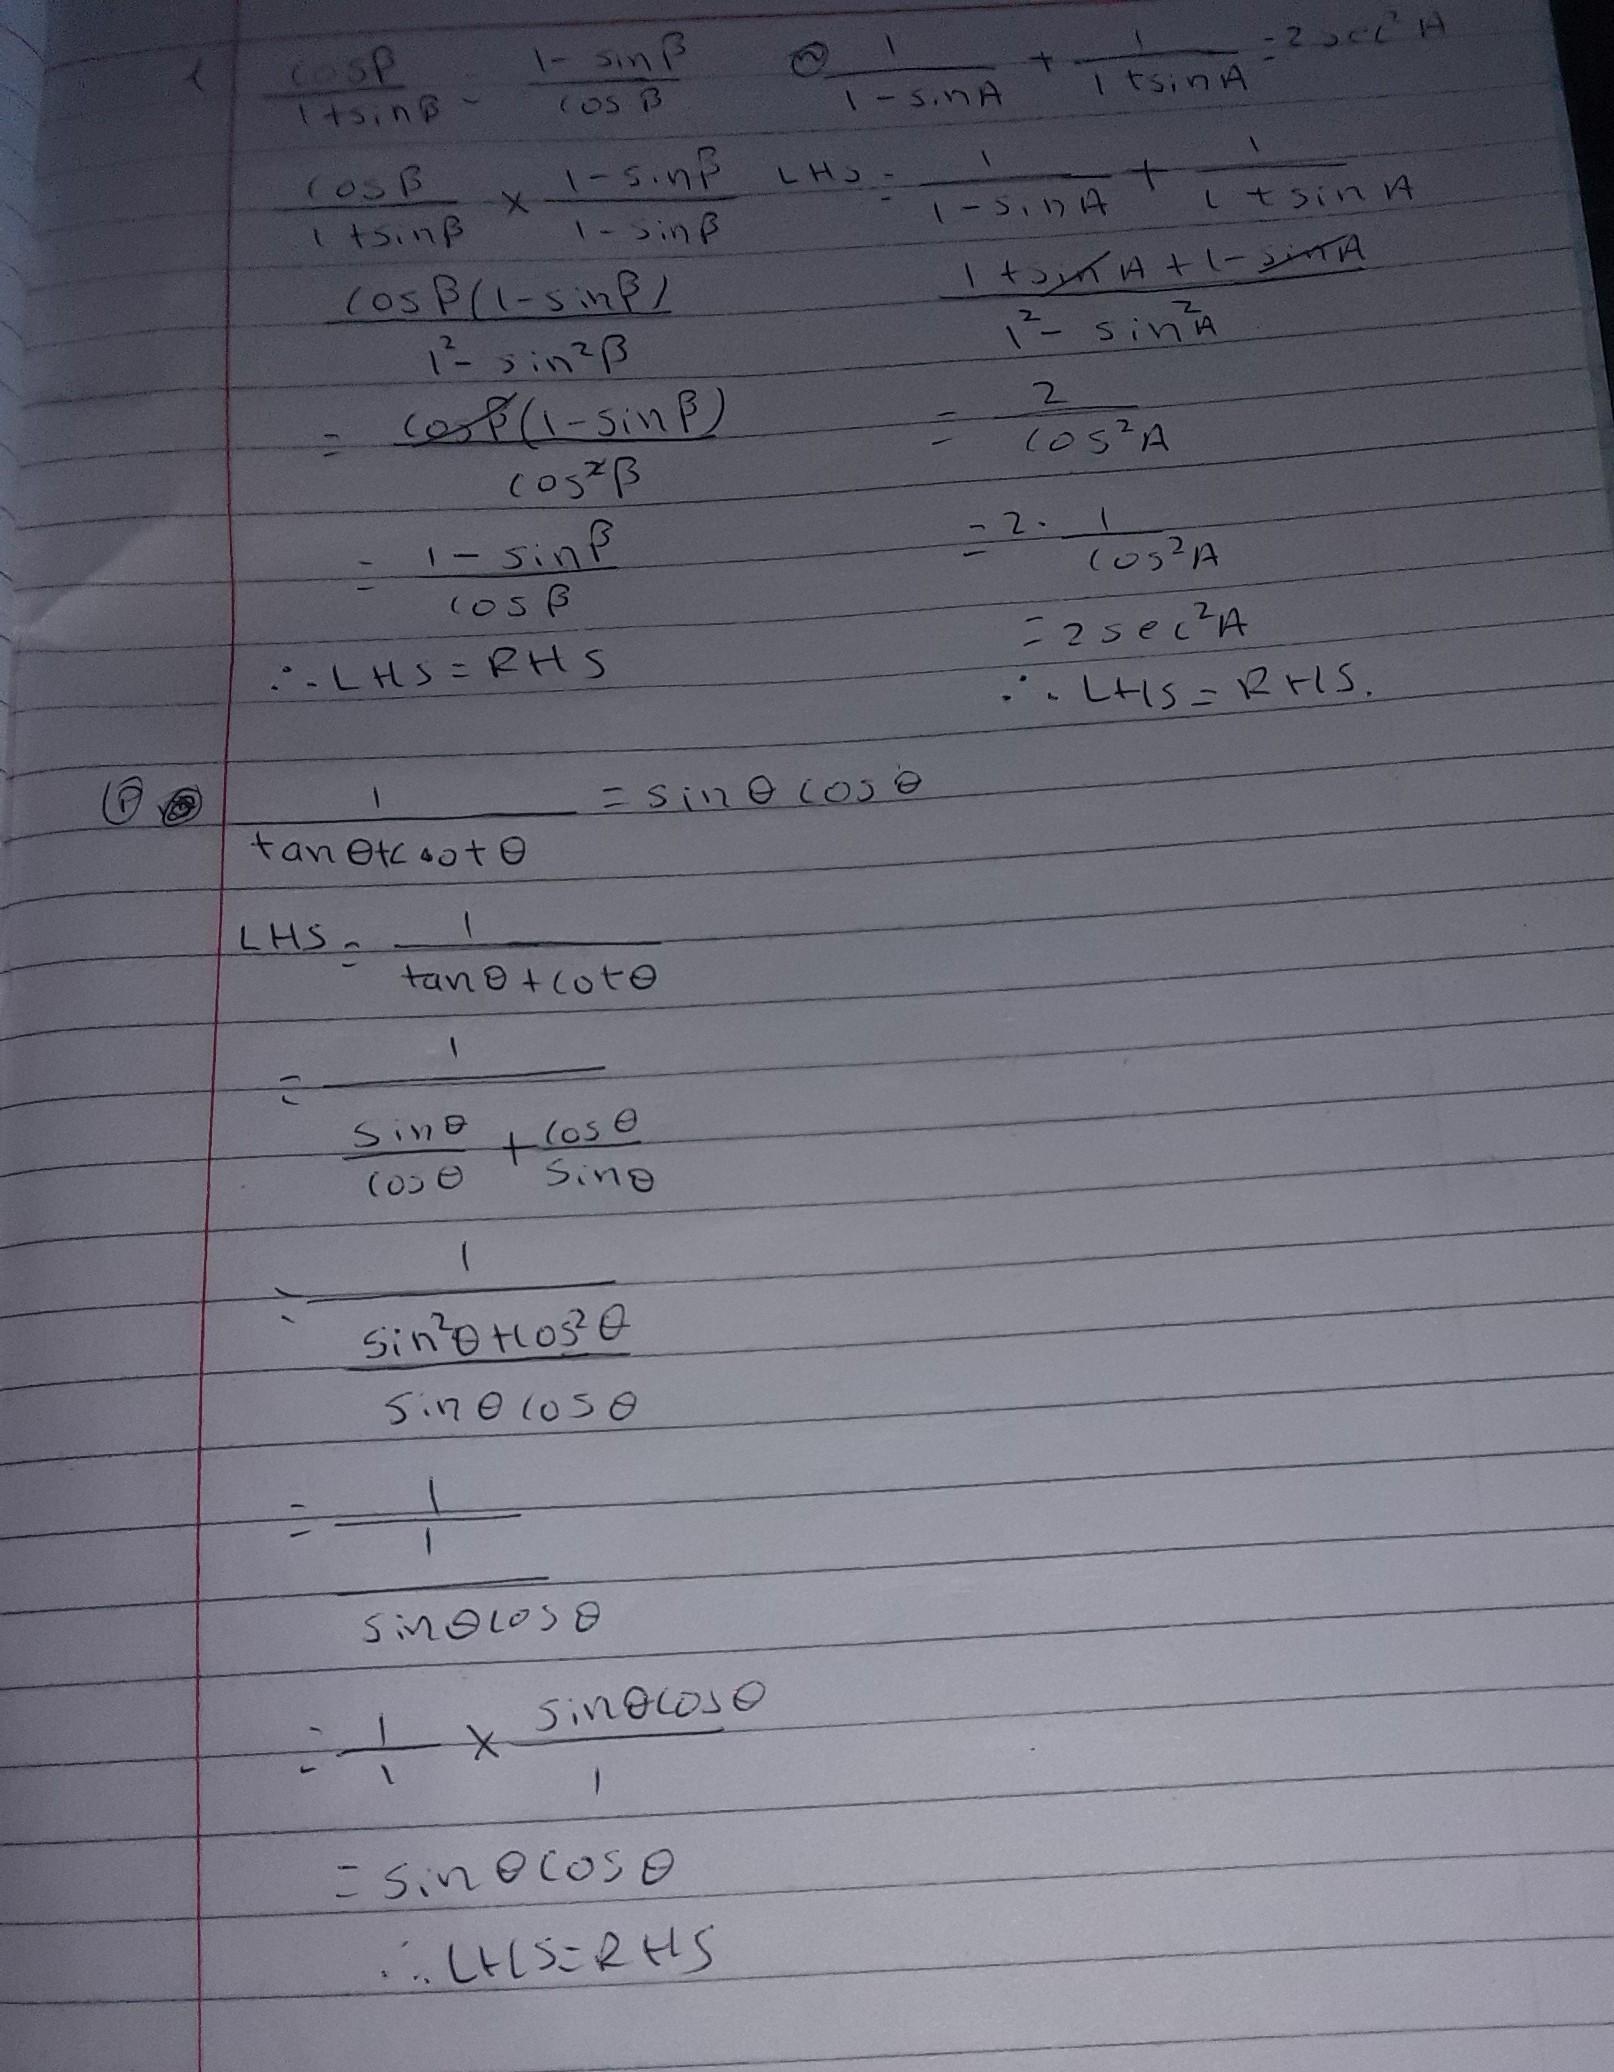 l cosβ/1+sinβ = 1-sinβ/cosβ
cosβ/1+sinβ × 1-sinβ/1-sinβ
cosβ(1-sinβ)/1²-sin²β
= cosβ(1-sinβ)/cos²β
= 1-sinβ/cosβ
∴ LHS = RHS
1/1-sinA + 1/1+sinA = 2sec²A
LHS = 1/1-sinA + 1/1+sinA
1+sinA+1-sinA/1²-sin²A
= 2/cos²A
= 2 · 1/cos²A
= 2sec²A
∴ LHS = RHS.
(P) 1/tanθ+cotθ = sinθcosθ
LHS = 1/tanθ+cotθ
= 1/(sinθ/cosθ + cosθ/sinθ)
= 1/(sin²θ+cos²θ/sinθcosθ)
= 1/(1/sinθcosθ)
= 1/1 × sinθcosθ/1
= sinθcosθ
∴ LHS = RHS